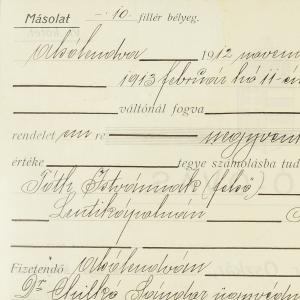 Másolat — 10 fillér bélyeg.
Alsólendva 1912 novem
1913 február hó 11-én
váltónál fogva
rendelet em re negyven
értéke tegye számolásba tud
Tóth Istvánnak (felső)
Lentikápolnán
Fizetendő Alsólendván
Dr Sándor ügyvéd